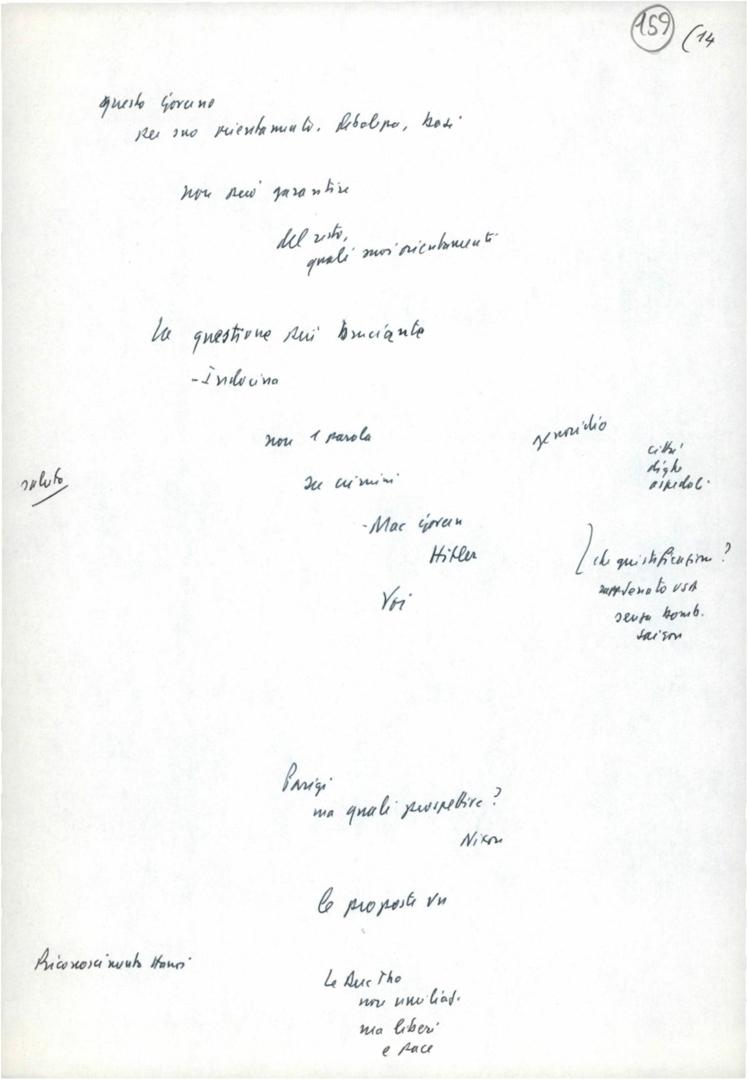 159 (14
questo Governo
per suo orientamento. debolezza, basi
non può garantire
del resto,
quali suoi orientamenti
la questione più bruciante
- Indocina
non 1 parola
genocidio
città
dighe
ospedali
saluto
su crimini
- Mac Govern
Hitler
che giustificazione?
Senato USA
senza bomb.
Saigon
Voi
Parigi
ma quali prospettive?
Nixon
le proposte VN
Riconoscimento Hanoi
Le Duc Tho
non umiliaz.
ma liberi
e pace